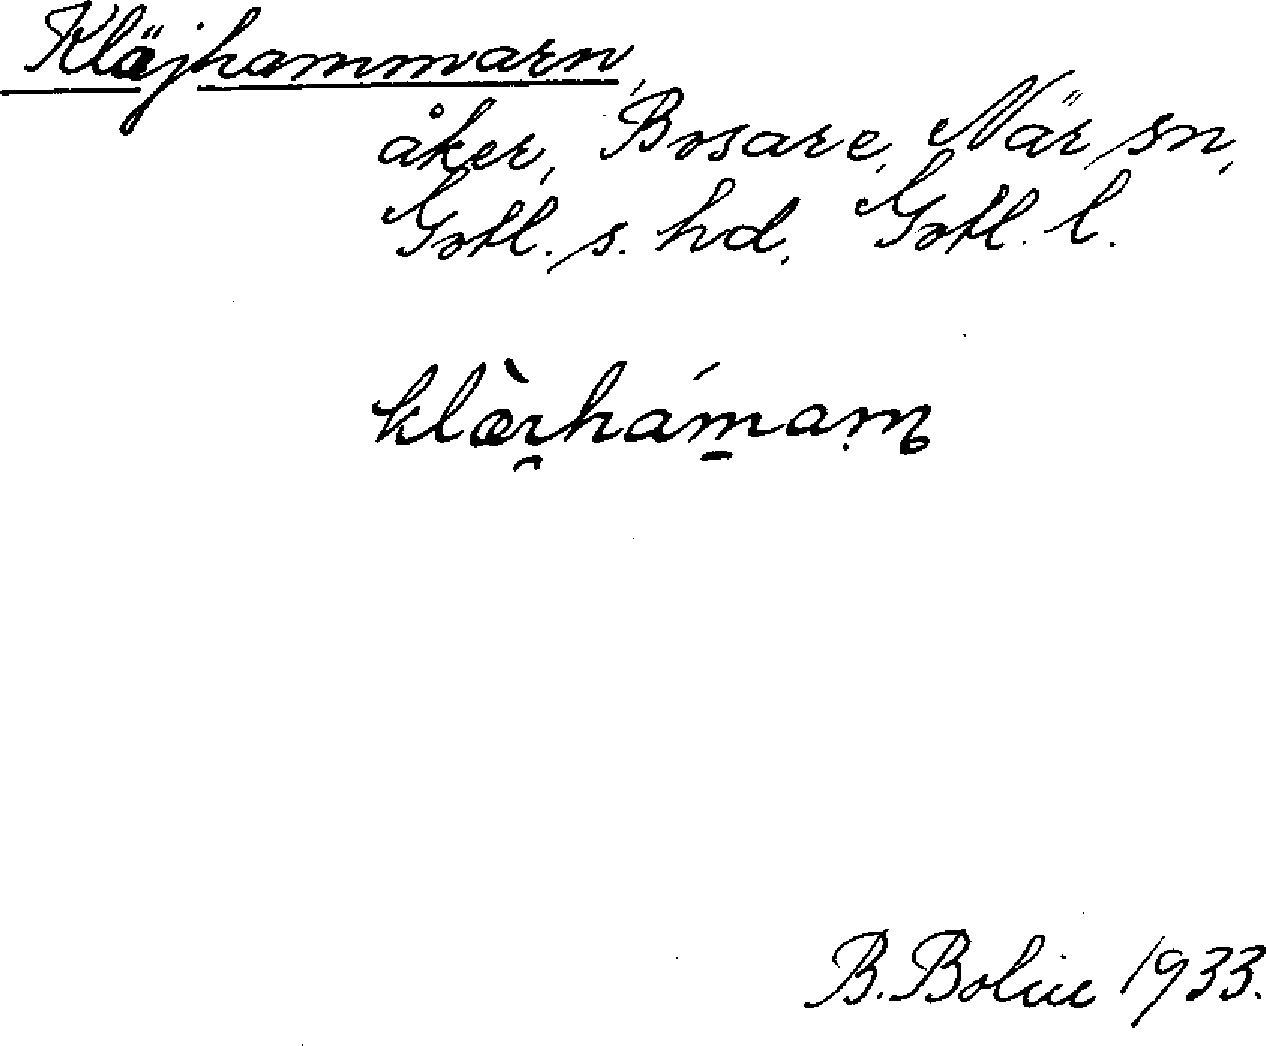 Kläjhammarn,
åker, Bosare, När sn,
Gotl. s. hd, Gotl. l.
B. Bolin 1933.